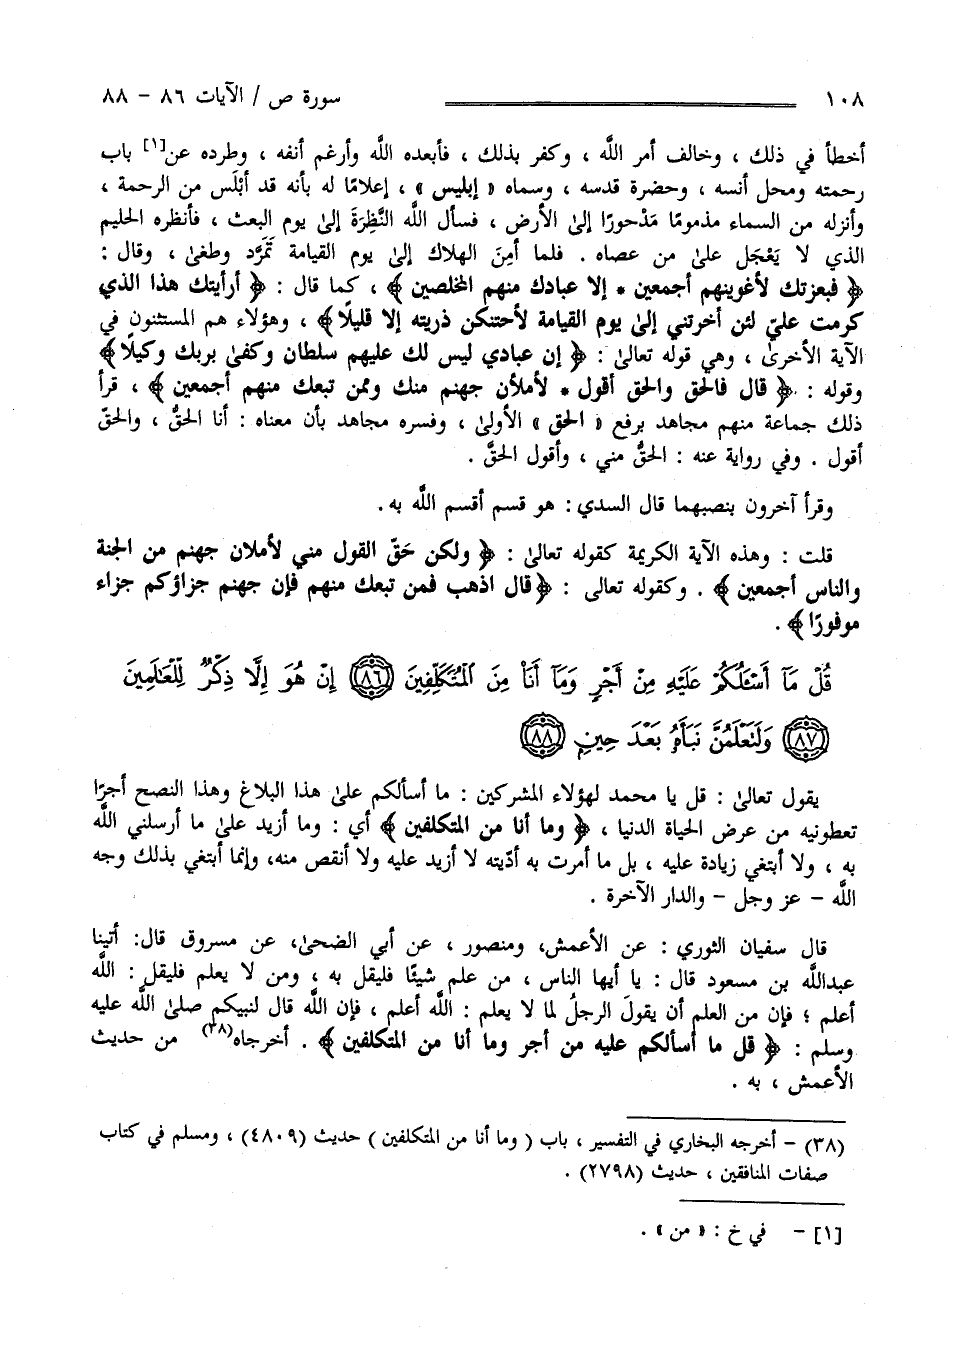 ١٠٨ سورة ص / الآيات ٨٦ - ٨٨
أخطأ في ذلك ، وخالف أمر اللَّه ، وكفر بذلك ، فأبعده اللَّه وأرغم أنفه ، وطرده عن[١] باب
رحمته ومحل أنسه ، وحضرة قدسه ، وسماه « إبليس » ، إعلامًا له بأنه قد أبْلَس من الرحمة ،
وأنزله من السماء مذمومًا مَدْحورًا إلىٰ الأرض ، فسأل اللَّه النَّظِرَةَ إلىٰ يوم البعث ، فأنظره الحليم
الذي لا يَعْجَل علىٰ من عصاه . فلما أمِنَ الهلاك إلىٰ يوم القيامة تَمَرَّد وطغىٰ ، وقال :
﴿ فبعزتك لأغوينهم أجمعين * إلا عبادك منهم المخلصين ﴾ ، كما قال : ﴿ أرأيتك هذا الذي
كرمت عليّ لئن أخرتني إلىٰ يوم القيامة لأحتنكن ذريته إلا قليلًا ﴾ ، وهؤلاء هم المستثنون في
الآية الأخرىٰ ، وهي قوله تعالىٰ : ﴿ إن عبادي ليس لك عليهم سلطان وكفىٰ بربك وكيلًا ﴾
وقوله : ﴿ قال فالحق والحق أقول * لأملأن جهنم منك وممن تبعك منهم أجمعين ﴾ ، قرأ
ذلك جماعة منهم مجاهد برفع « الحق » الأولىٰ ، وفسره مجاهد بأن معناه : أنا الحقُّ ، والحقّ
أقول . وفي رواية عنه : الحقُّ مني ، وأقول الحقَّ .
وقرأ آخرون بنصبهما قال السدي : هو قسم أقسم اللَّه به .
قلت : وهذه الآية الكريمة كقوله تعالىٰ : ﴿ ولكن حَقّ القول مني لأملان جهنم من الجنة
والناس أجمعين ﴾ . وكقوله تعالى : ﴿ قال اذهب فمن تبعك منهم فإن جهنم جزاؤكم جزاء
موفورًا ﴾ .
قُلْ مَآ أَسْـَٔلُكُمْ عَلَيْهِ مِنْ أَجْرٍ وَمَآ أَنَا۠ مِنَ ٱلْمُتَكَلِّفِينَ ٨٦ إِنْ هُوَ إِلَّا ذِكْرٌ لِّلْعَٰلَمِينَ
٨٧ وَلَتَعْلَمُنَّ نَبَأَهُۥ بَعْدَ حِينٍ ٨٨
يقول تعالىٰ : قل يا محمد لهؤلاء المشركين : ما أسألكم علىٰ هذا البلاغ وهذا النصح أجرًا
تعطونيه من عرض الحياة الدنيا ، ﴿ وما أنا من المتكلفين ﴾ أي : وما أزيد علىٰ ما أرسلني اللَّه
به ، ولا أبتغي زيادة عليه ، بل ما أمرت به أدّيته لا أزيد عليه ولا أنقص منه، وإنما أبتغي بذلك وجه
اللَّه - عز وجل - والدار الآخرة .
قال سفيان الثوري : عن الأعمش، ومنصور ، عن أبي الضحىٰ، عن مسروق قال: أتينا
عبداللَّه بن مسعود قال : يا أيها الناس ، من علم شيئًا فليقل به ، ومن لا يعلم فليقل : اللَّه
أعلم ؛ فإن من العلم أن يقولَ الرجلُ لما لا يعلم : اللَّه أعلم ، فإن اللَّه قال لنبيكم صلىٰ اللَّه عليه
وسلم : ﴿ قل ما أسألكم عليه من أجر وما أنا من المتكلفين ﴾ . أخرجاه(٣٨) من حديث
الأعمش ، به .
(٣٨) - أخرجه البخاري في التفسير ، باب ( وما أنا من المتكلفين ) حديث (٤٨٠٩) ، ومسلم في كتاب
صفات المنافقين ، حديث (٢٧٩٨) .
[١] - في خ : « من » .